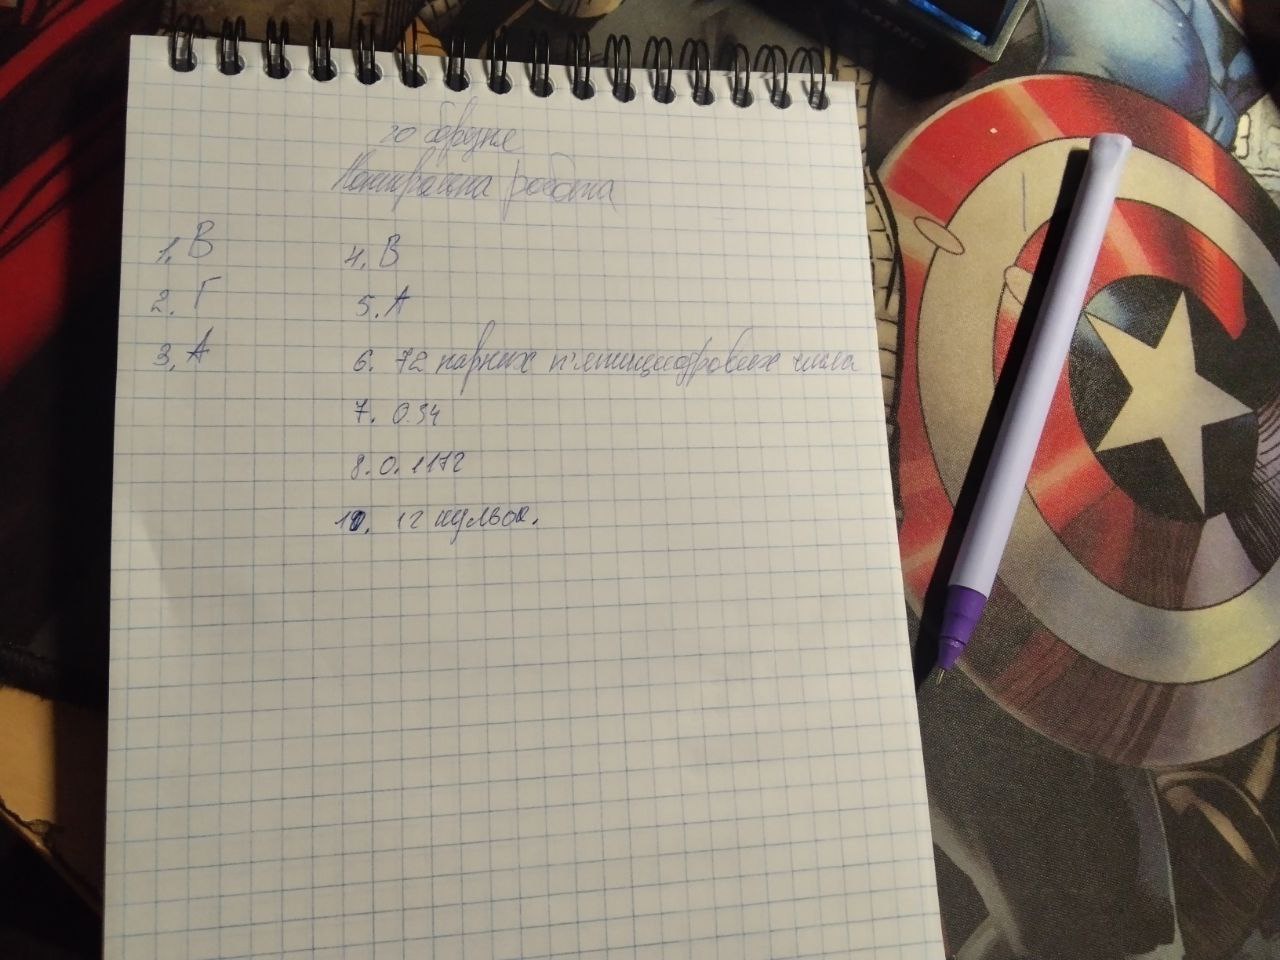 20 березня
Контрольна робота
1. В
2. Г
3. А
4. В
5. А
6. 72 парних п'ятицифрових числа
7. 0.34
8. 0.1172
10. 12 кульок.